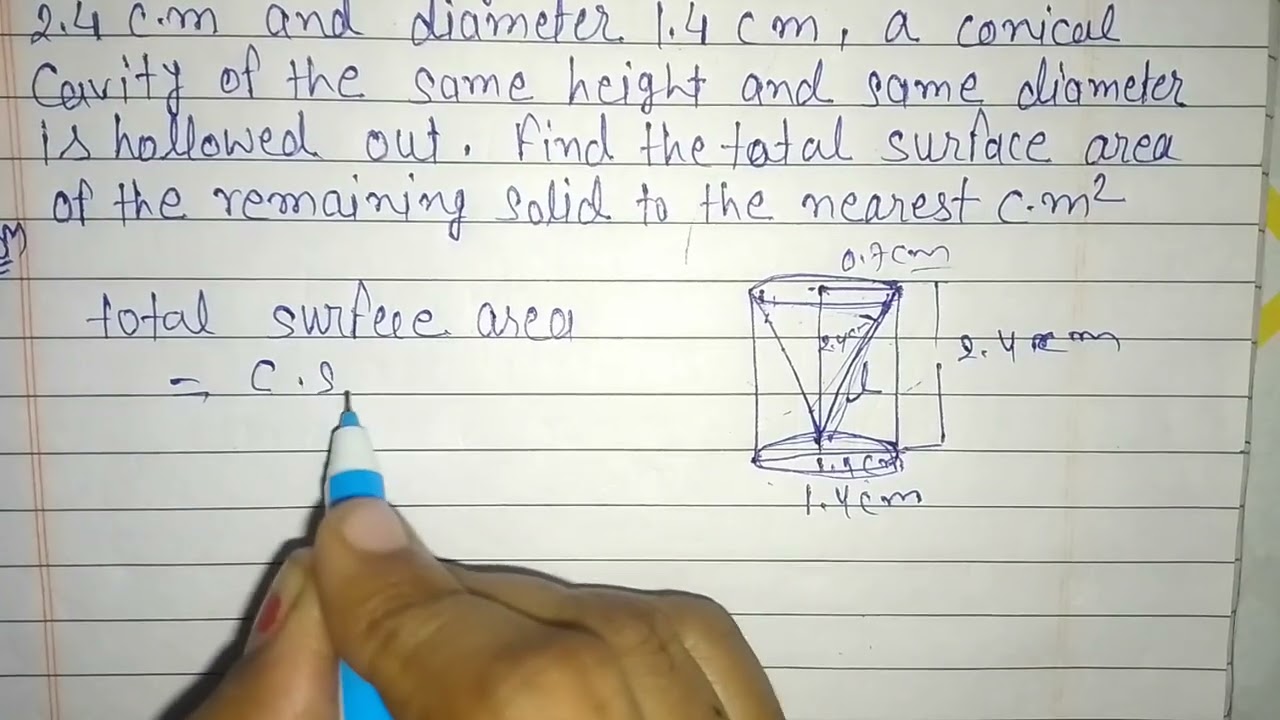 2.4 c.m and diameter 1.4 cm, a conical
Cavity of the same height and same diameter
is hollowed out. Find the total surface area
of the remaining solid to the nearest c.m²
0.7cm
total surfece area
2.4cm
2.4cm
= C.S
l
1.4cm
1.4cm